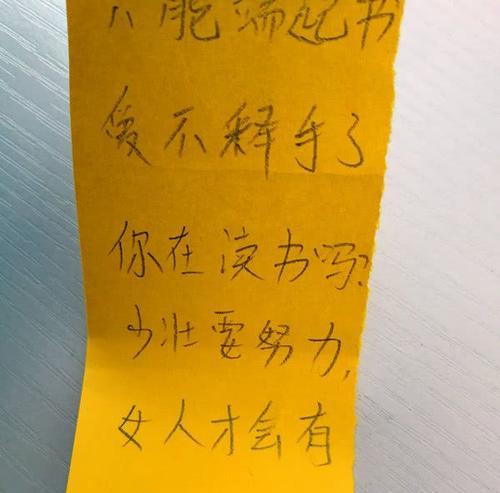 能端起书
爱不释手了
你在读书吗?
少壮要努力,
女人才会有